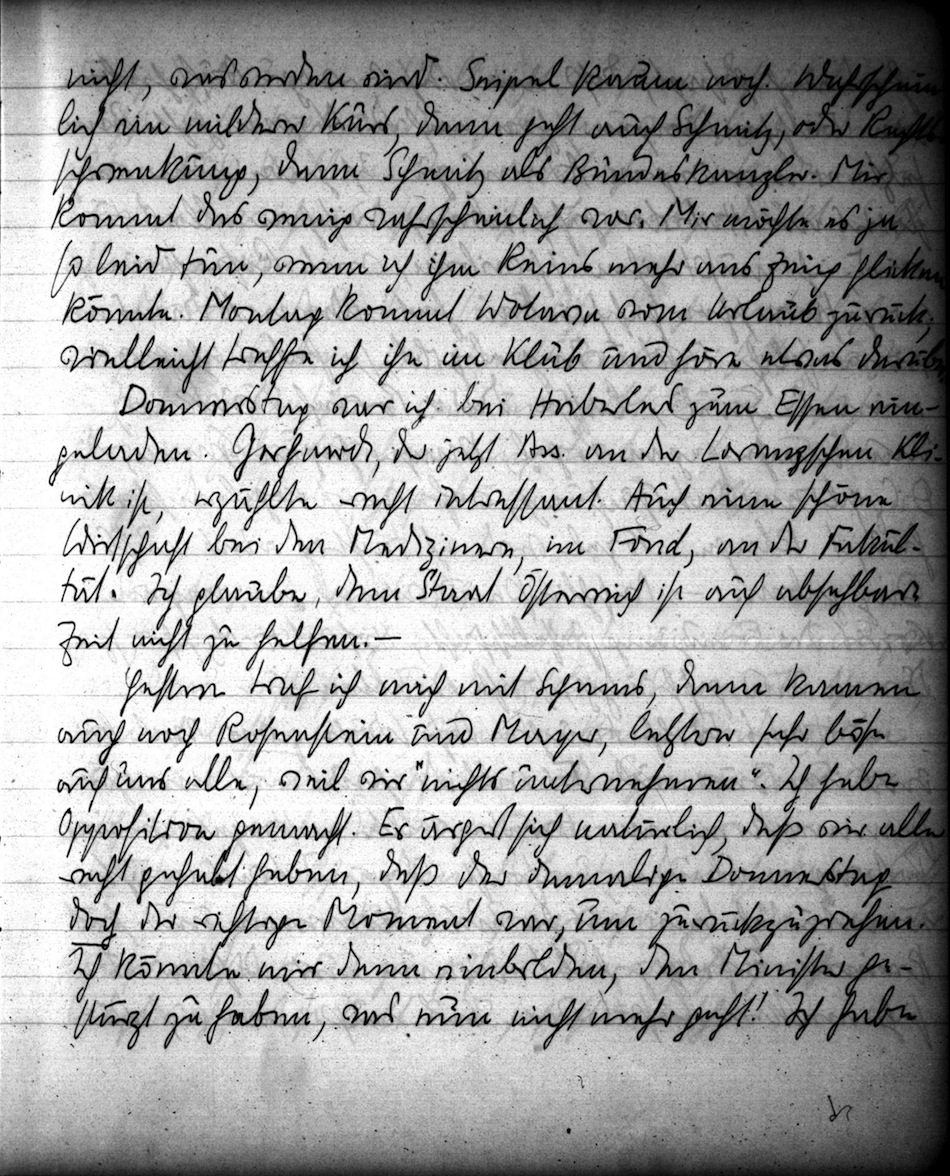 nicht, was werden wird. Seipel kaum noch. Wahrschein
lich ein milderer Kurs, dann geht auch Schmitz, oder Rechts
schwenkung, dann Schmitz als Bundeskanzler. Mir
kommt das wenig wahrscheinlich vor. Mir möchte es ja
so leid tun, wenn ich ihm keins mehr ans Zeug flicken
könnte. Montag kommt Wotawa vom Urlaub zurück,
vielleicht treffe ich ihn im Klub und höre etwas darüber
Donnerstag war ich bei Haberlands zum Essen ein-
geladen. Gerhardt, der jetzt Ass. an der Lorenzschen Kli-
nik ist, erzählte recht interessant. Auch eine schöne
Wirtschaft bei den Medizinern, im Fond, an der Fakul-
tät. Ich glaube, dem Staat Österreich ist auf absehbare
Zeit nicht zu helfen.—
Gestern traf ich mich mit Schams, dann kamen
auch noch Rosenstein und Mayer, letzterer sehr böse
auf uns alle, weil wir "nichts unternehmen". Ich habe
Opposition gemacht. Er ärgert sich natürlich, daß wir alle
recht gehabt haben, daß der damalige Donnerstag
doch der richtige Moment war, um zurückzuziehen.
Ich könnte mir dann einbilden, den Minister ge-
stürzt zu haben, was nun nicht mehr geht! Ich habe